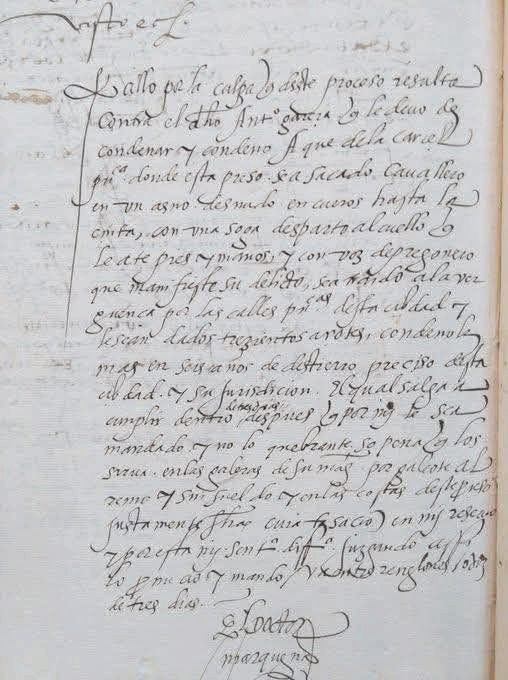 visto etc.
Fallo por la culpa q deste proceso resulta
Contra el dho Antº garcia q le devo de
condenar y condeno A que de la carcel
pubca donde esta preso sea sacado Cavallero
en un asno desnudo en cueros hasta la
cinta, con una soga desparto al cuello q
le ate pies y manos, y con voz de pregonero
que manifieste su delicto, sea traido a la ver
guenza por las calles pubcas desta ciudad y
le sean dados trezientos azotes, condenole
mas en seis años de destierro preciso desta
ciudad y su Jurisdicion. El qual salga a
de tres dias
cumplir dentro despues q por mi le sea
mandado y no lo quebrante so pena q los
sirva en las galeras de su mag. por galeote al
remo y sin sueldo y en las costas deste proceso
Justamente hechas cuia tasacion en mi reservo
y por esta mi sentª diffª. Juzgando assi
lo pronuncio y mando / Va entre renglones
de tres dias
El Doctor